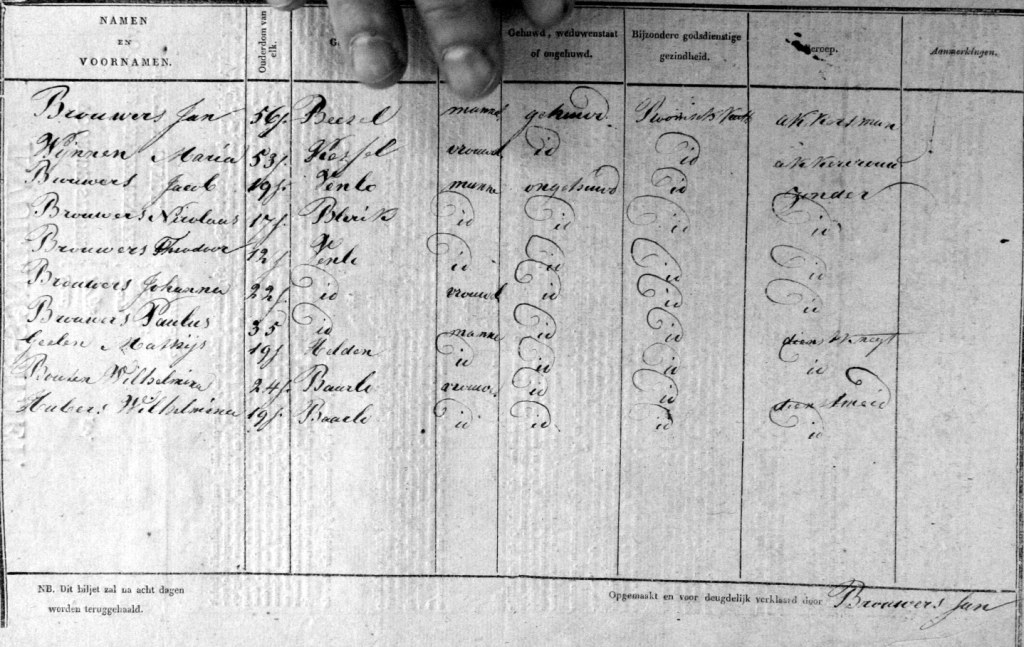 NAMEN EN VOORNAMEN. Ouderdom van elk. G. Gehuwd, weduwenstaat of ongehuwd. Bijzondere godsdienstige gezindheid. Beroep. Aanmerkingen.
Brouwers Jan 56 j. Beesel manne gehuwd Roomsch Kath akkersman
Wijnen Maria 53 j. Kessel vrouwe id id akkervrouw
Brouwers Jacob 19 j. Venlo manne ongehuwd id zonder
Brouwers Nicolaas 17 j. Blerik id id id id
Brouwers Theodoor 12 j Venlo id id id id
Brouwers Johanna 22 j. id vrouwe id id id
Brouwers Paulus 35 id manne id id dienstknegt
Geelen Mathijs 19 j. Helden id id id id
Wilhelmina 24 j. Baarlo vrouwe id id dienstmeid
Hubers Wilhelmina 19 j. Baarlo id id id id
NB. Dit biljet zal na acht dagen
worden teruggehaald.
Opgemaakt en voor deugdelijk verklaard door Brouwers Jan